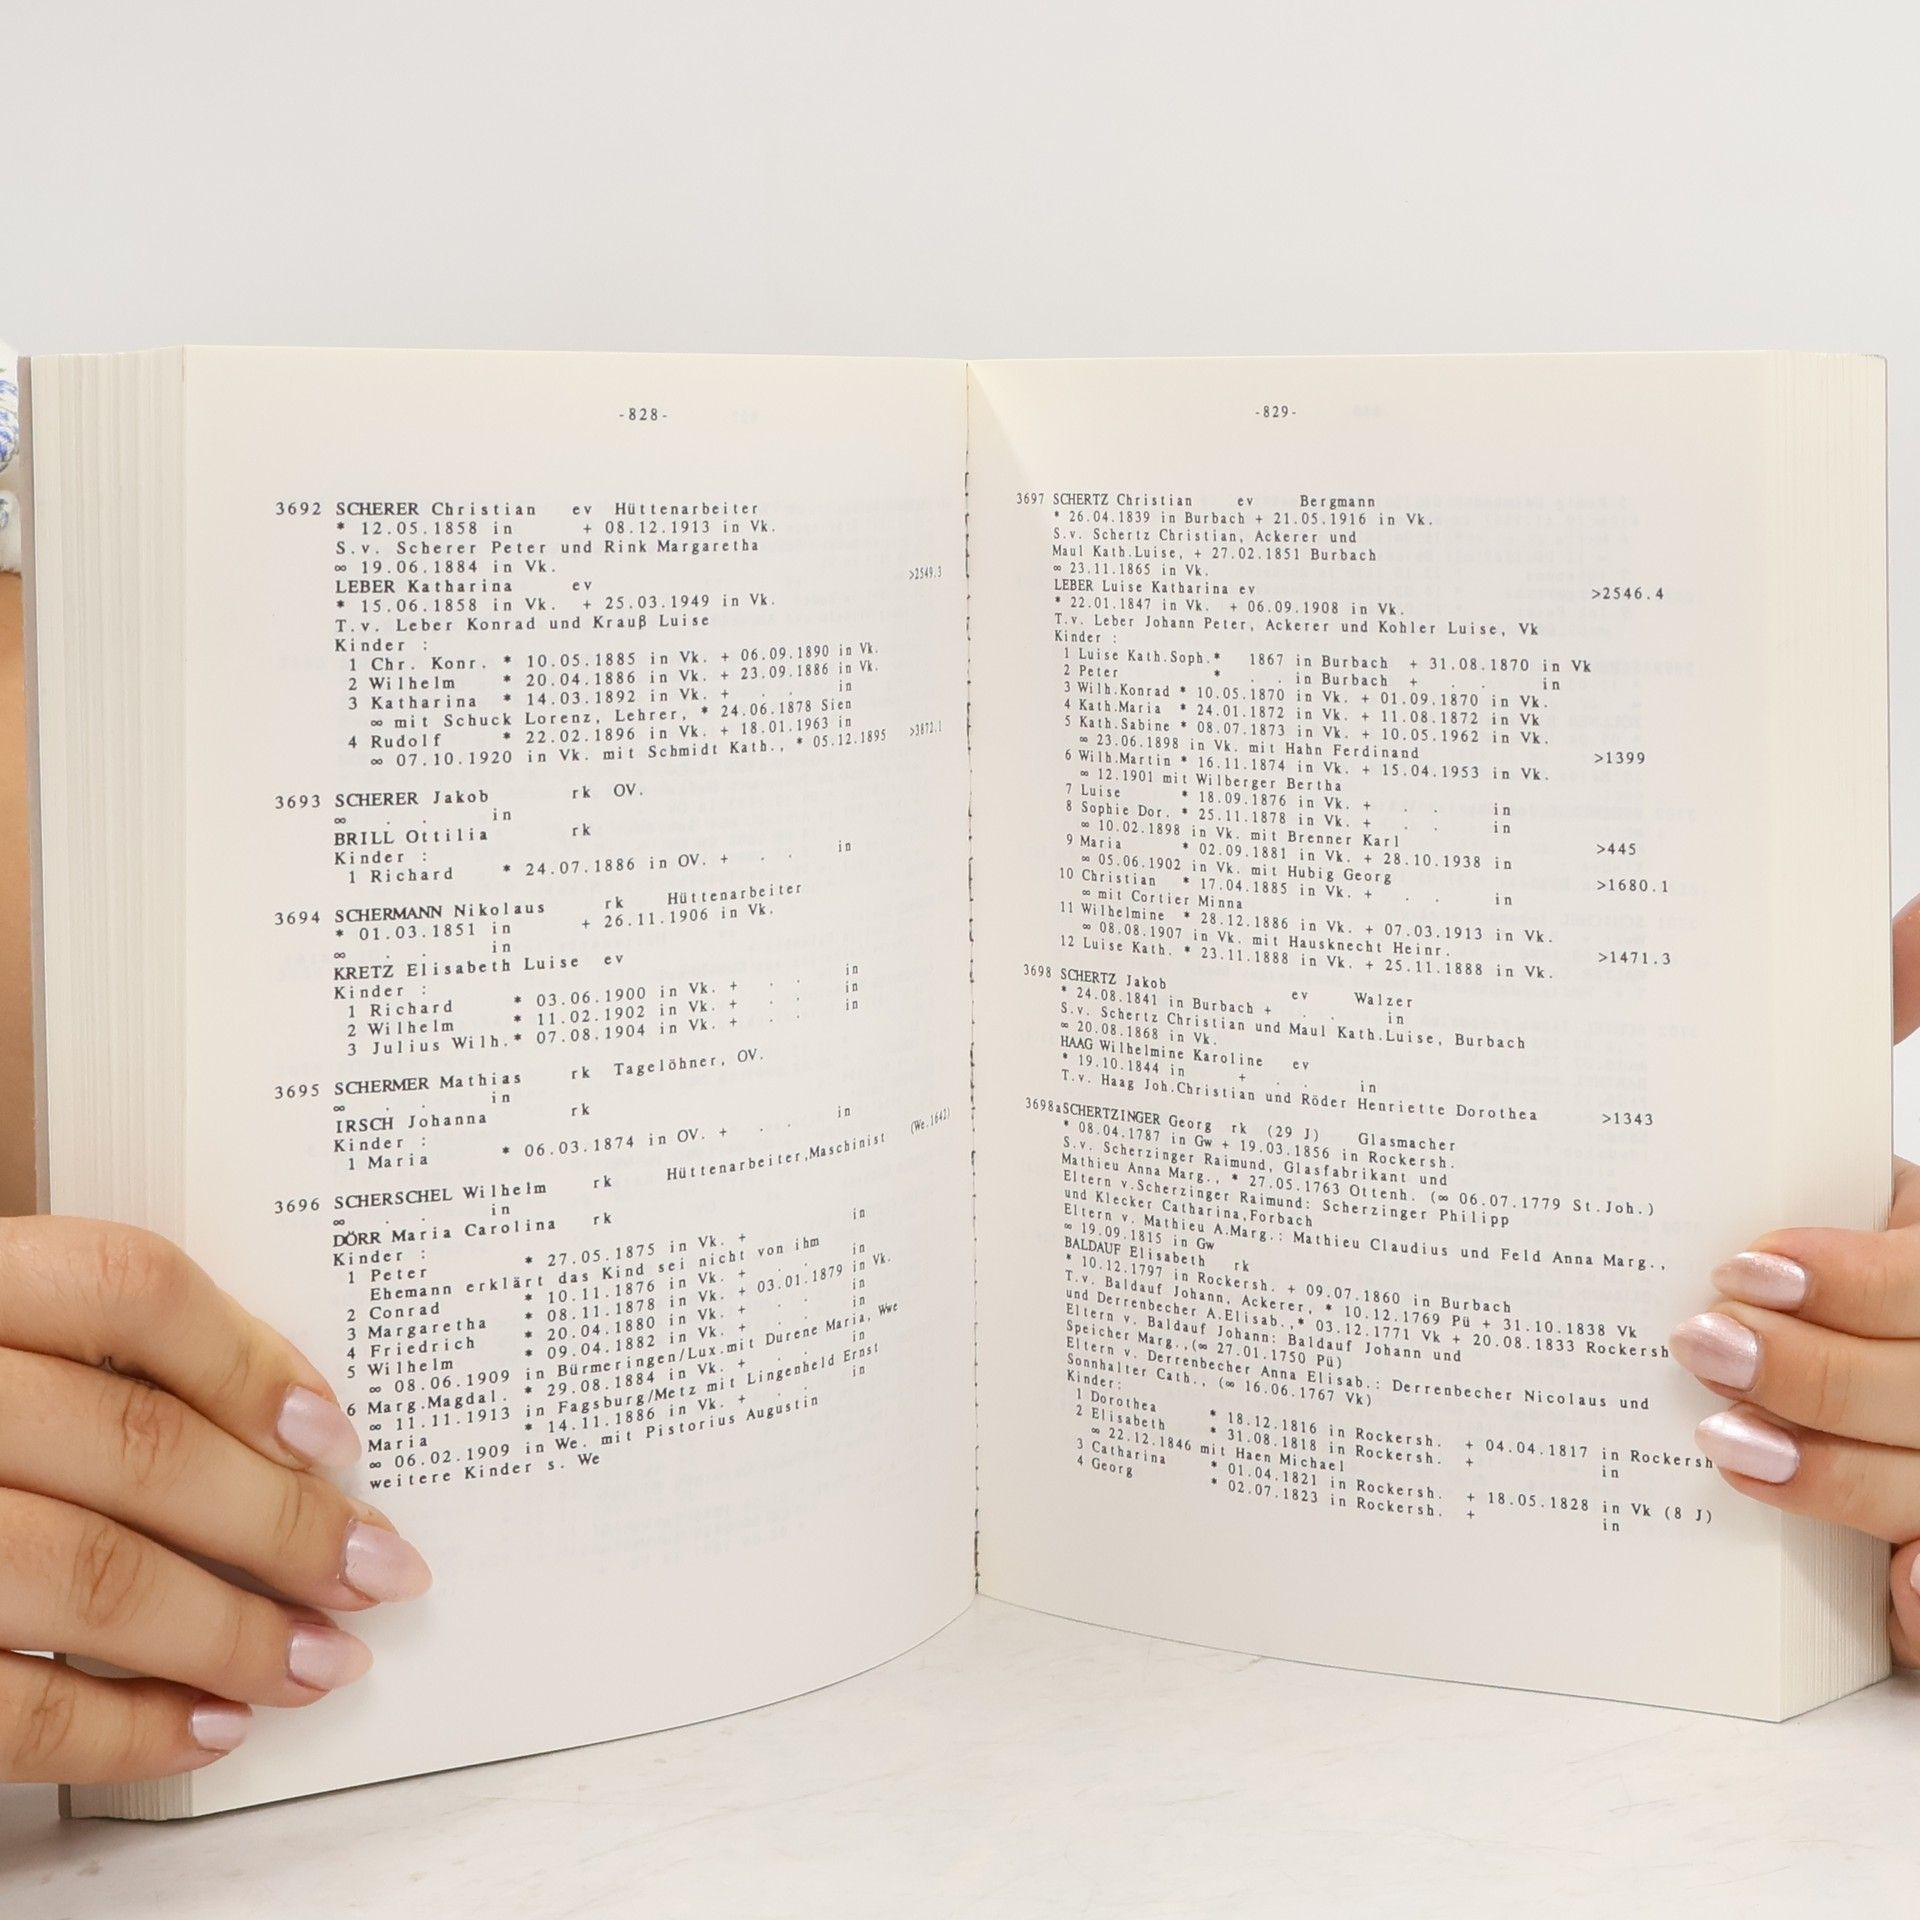 -828-
3692 SCHERER Christian ev Hüttenarbeiter
* 12.05.1858 in + 08.12.1913 in Vk.
S.v. Scherer Peter und Rink Margaretha
∞ 19.06.1884 in Vk.
LEBER Katharina ev >2549.3
* 15.06.1858 in Vk. + 25.03.1949 in Vk.
T.v. Leber Konrad und Krauß Luise
Kinder :
1 Chr. Konr. * 10.05.1885 in Vk. + 06.09.1890 in Vk.
2 Wilhelm * 20.04.1886 in Vk. + 23.09.1886 in Vk.
3 Katharina * 14.03.1892 in Vk. + . . in
∞ mit Schuck Lorenz, Lehrer, * 24.06.1878 Sien
4 Rudolf * 22.02.1896 in Vk. + 18.01.1963 in
∞ 07.10.1920 in Vk. mit Schmidt Kath., * 05.12.1895 >3872.1
3693 SCHERER Jakob rk OV.
∞ . . in
BRILL Ottilia rk
Kinder :
1 Richard * 24.07.1886 in OV. + . . in
3694 SCHERMANN Nikolaus rk Hüttenarbeiter
* 01.03.1851 in + 26.11.1906 in Vk.
∞ . . in
KRETZ Elisabeth Luise ev
Kinder :
1 Richard * 03.06.1900 in Vk. + . . in
2 Wilhelm * 11.02.1902 in Vk. + . . in
3 Julius Wilh.* 07.08.1904 in Vk. + . . in
3695 SCHERMER Mathias rk Tagelöhner, OV.
∞ . . in
IRSCH Johanna rk
Kinder :
1 Maria * 06.03.1874 in OV. + . . in
3696 SCHERSCHEL Wilhelm rk Hüttenarbeiter,Maschinist (We.1642)
∞ . . in
DÖRR Maria Carolina rk
Kinder :
1 Peter * 27.05.1875 in Vk. + in
Ehemann erklärt das Kind sei nicht von ihm
2 Conrad * 10.11.1876 in Vk. + . . in
3 Margaretha * 08.11.1878 in Vk. + 03.01.1879 in Vk.
4 Friedrich * 20.04.1880 in Vk. + . . in
5 Wilhelm * 09.04.1882 in Vk. + . . in
∞ 08.06.1909 in Bürmeringen/Lux.mit Durene Maria, Wwe
6 Marg.Magdal. * 29.08.1884 in Vk. + . . in
∞ 11.11.1913 in Fagsburg/Metz mit Lingenheld Ernst
Maria * 14.11.1886 in Vk. + . . in
∞ 06.02.1909 in We. mit Pistorius Augustin
weitere Kinder s. We
-829-
3697 SCHERTZ Christian ev Bergmann
* 26.04.1839 in Burbach + 21.05.1916 in Vk.
S.v. Schertz Christian, Ackerer und
Maul Kath.Luise, + 27.02.1851 Burbach
∞ 23.11.1865 in Vk.
LEBER Luise Katharina ev >2546.4
* 22.01.1847 in Vk. + 06.09.1908 in Vk.
T.v. Leber Johann Peter, Ackerer und Kohler Luise, Vk
Kinder :
1 Luise Kath.Soph.* 1867 in Burbach + 31.08.1870 in Vk
2 Peter * . . in Burbach + . . in
3 Wilh.Konrad * 10.05.1870 in Vk. + 01.09.1870 in Vk.
4 Kath.Maria * 24.01.1872 in Vk. + 11.08.1872 in Vk
5 Kath.Sabine * 08.07.1873 in Vk. + 10.05.1962 in Vk.
∞ 23.06.1898 in Vk. mit Hahn Ferdinand >1399
6 Wilh.Martin * 16.11.1874 in Vk. + 15.04.1953 in Vk.
∞ 12.1901 mit Wilberger Bertha
7 Luise * 18.09.1876 in Vk. + . . in
8 Sophie Dor. * 25.11.1878 in Vk. + . . in
∞ 10.02.1898 in Vk. mit Brenner Karl >445
9 Maria * 02.09.1881 in Vk. + 28.10.1938 in
∞ 05.06.1902 in Vk. mit Hubig Georg >1680.1
10 Christian * 17.04.1885 in Vk. + . . in
∞ mit Cortier Minna
11 Wilhelmine * 28.12.1886 in Vk. + 07.03.1913 in Vk.
∞ 08.08.1907 in Vk. mit Hausknecht Heinr. >1471.3
12 Luise Kath. * 23.11.1888 in Vk. + 25.11.1888 in Vk.
3698 SCHERTZ Jakob ev Walzer
* 24.08.1841 in Burbach + . . in
S.v. Schertz Christian und Maul Kath.Luise, Burbach
∞ 20.08.1868 in Vk.
HAAG Wilhelmine Karoline ev >1343
* 19.10.1844 in + . . in
T.v. Haag Joh.Christian und Röder Henriette Dorothea
3698a SCHERTZINGER Georg rk (29 J) Glasmacher
* 08.04.1787 in Gw + 19.03.1856 in Rockersh.
S.v. Scherzinger Raimund, Glasfabrikant und
Mathieu Anna Marg., * 27.05.1763 Ottenh. (∞ 06.07.1779 St.Joh.)
Eltern v.Scherzinger Raimund: Scherzinger Philipp
und Klecker Catharina,Forbach
Eltern v. Mathieu A.Marg.: Mathieu Claudius und Feld Anna Marg.,
∞ 19.09.1815 in Gw
BALDAUF Elisabeth rk
* 10.12.1797 in Rockersh. + 09.07.1860 in Burbach
T.v. Baldauf Johann, Ackerer, * 10.12.1769 Pü + 31.10.1838 Vk
und Derrenbecher A.Elisab.,* 03.12.1771 Vk + 20.08.1833 Rockersh
Eltern v. Baldauf Johann: Baldauf Johann und
Speicher Marg.,(∞ 27.01.1750 Pü)
Eltern v. Derrenbecher Anna Elisab.: Derrenbecher Nicolaus und
Sonnhalter Cath., (∞ 16.06.1767 Vk)
Kinder:
1 Dorothea * 18.12.1816 in Rockersh. + 04.04.1817 in Rockersh
2 Elisabeth * 31.08.1818 in Rockersh. + in
∞ 22.12.1846 mit Haen Michael
3 Catharina * 01.04.1821 in Rockersh. + 18.05.1828 in Vk (8 J)
4 Georg * 02.07.1823 in Rockersh. + in